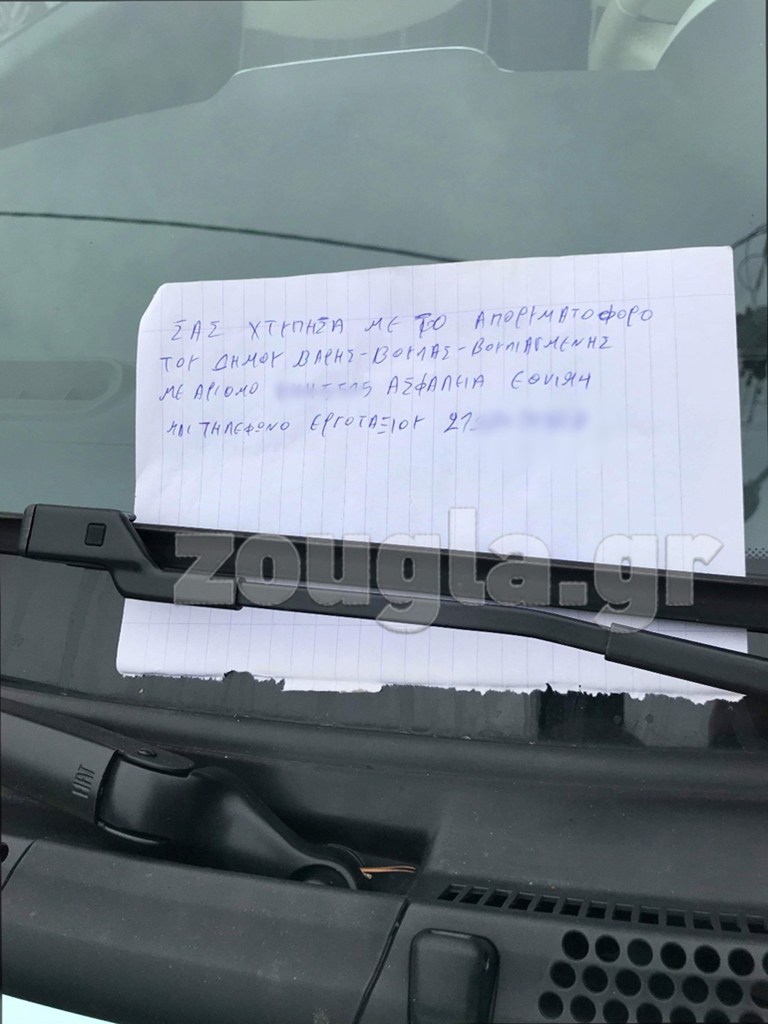 ΣΑΣ ΧΤΥΠΗΣΑ ΜΕ ΤΟ ΑΠΟΡΙΜΑΤΟΦΟΡΟ
ΤΟΥ ΔΗΜΟΥ ΒΑΡΗΣ-ΒΟΥΛΑΣ-ΒΟΥΛΙΑΓΜΕΝΗΣ
ΜΕ ΑΡΙΘΜΟ ΑΣΦΑΛΕΙΑ ΕΘΝΙΚΗ
ΚΑΙ ΤΗΛΕΦΩΝΟ ΕΡΓΟΤΑΞΙΟΥ 21
zougla.gr
FIAT